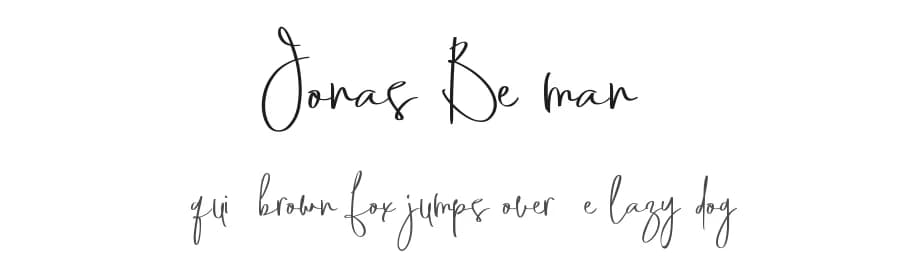 Jonas Be man
qui brown fox jumps over e lazy dog